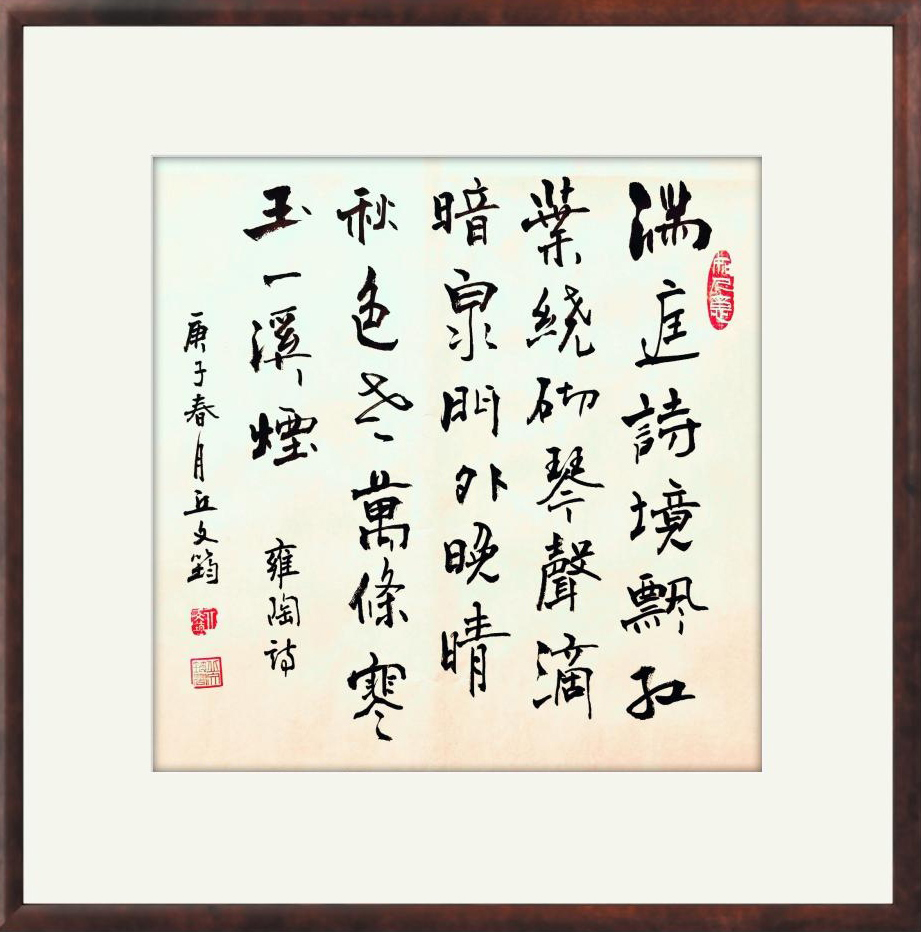 滿庭詩境飄紅
葉繞砌琴聲滴
暗泉門外晚晴
秋色老萬條寒
玉一溪煙 雍陶詩
庚子春月丘文筠